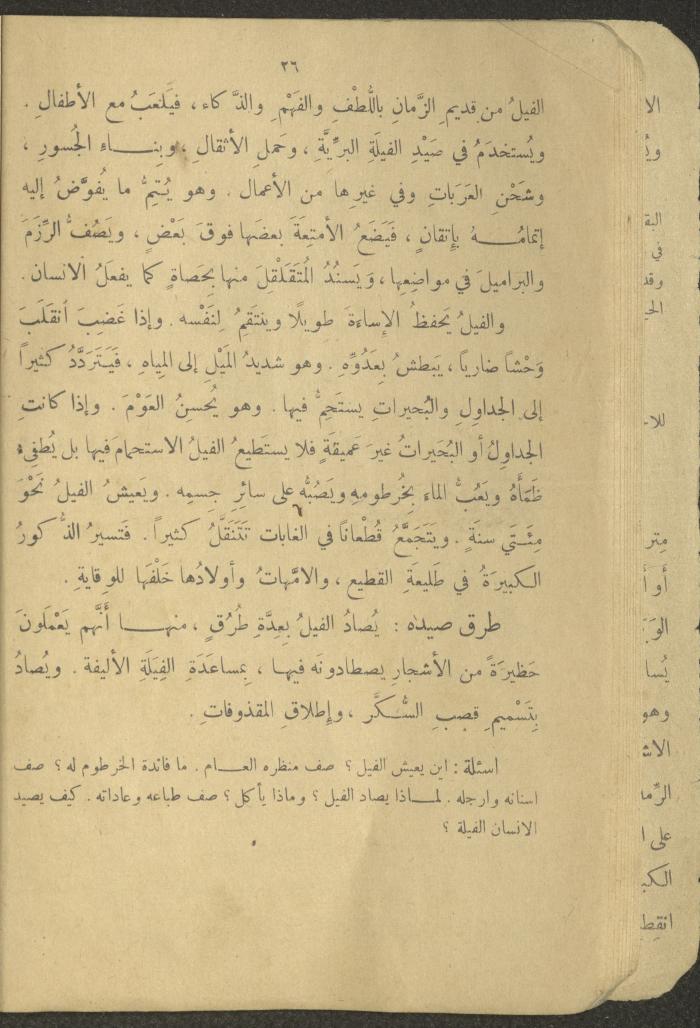 ٢٦
الفيلُ من قديمِ الزَّمانِ باللُّطْفِ والفَهْمِ والذَّكاء، فيَلعَبُ مع الأطفالِ.
ويُستخدَمُ في صَيْدِ الفيلَةِ البرِّيَّةِ، وحَمل الأثقال، وبنــاءِ الجُسورِ،
وشَحْنِ العَرَباتِ وفي غيرِها من الأعمال. وهو يُتِمُّ ما يُفوَّضُ إليه
إتمامُــهُ بإتقانٍ، فَيَضَعُ الأمتعَةَ بعضَها فوقَ بَعْضٍ، ويَصُفُّ الرِّزَمَ
والبراميلَ في مواضِعِها، وَيَسنُدُ المُتَقَلْقِلَ منها بحَصاةٍ كما يفعَلُ الانسان.
والفيلُ يَحفظُ الإساءَةَ طويلًا وينتَقِمُ لِنَفْسه. وإذا غَضِبَ أنقَلَبَ
وَحْشاً ضارياً، يَبطش بعَدُوِّه. وهو شديدُ المَيْلِ إلى المِياهِ، فَيَتَردَّدُ كثيراً
إلى الجداوِلِ والبُحيراتِ يستَحِمُّ فيها. وهو يُحسِنُ العَوْمَ. وإذا كانتِ
الجداوِلُ أو البُحَيراتُ غيرَ عَميقَةٍ فلا يستَطيعُ الفيلُ الاستحمامَ فيها بل يُطفِىءُ
ظَمَأَهُ ويَعُبُّ الماءَ بِخُرطومِهِ ويَصُبُّه على سائرِ جسمِه. ويَعيشُ الفيلُ نَحْوَ
مِئَتَي سنَةٍ. ويتَجَمَّعُ قُطْعاناً في الغابات تَتَنَقَّلُ كثيراً. فَتَسيرُ الذُّكورُ
الكبيرَةُ في طَليعَةِ القطيع، والامَّهاتُ وأولادُها خَلْفَها للوِقايةِ.
طرق صيده: يُصادُ الفيلُ بعِدَّةِ طُرُقٍ، منهــا أَنَّهم يَعْمَلونَ
حَظيرَةً من الأشجارِ يصطادونَه فيهــا، بمساعَدَةِ الفِيَلَةِ الأليفة. ويُصادُ
بِتَسْميمِ قصَبِ السُّكَّر، وإطلاقِ المقذوفاتِ.
اسئلة: اين يعيش الفيل؟ صف منظره العــام. ما فائدة الخرطوم له؟ صف
اسنانه وارجله. لمــاذا يصاد الفيل؟ وماذا يأكل؟ صف طباعه وعاداته. كيف يصيد
الانسان الفيلة؟